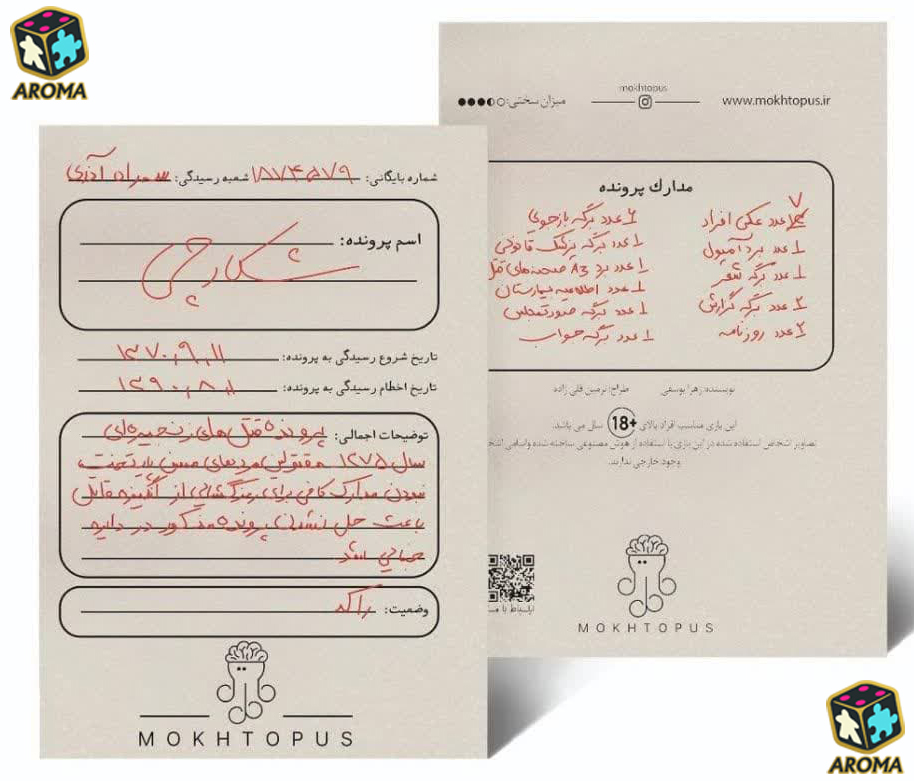 AROMA
شماره بایگانی: ۱۸۷۴۵۷۹ شعبه رسیدگی: سهراه آذری
اسم پرونده: شکارچی
تاریخ شروع رسیدگی به پرونده: ۱۳۷۰,۹,۱۱
تاریخ اخطام رسیدگی به پرونده: ۱۳۹۰,۸,۱
توضیحات اجمالی: پرونده قتل‌های زنجیره‌ای
سال ۱۳۷۵ مقتولین مردهای مسن پایتخت
نبودن مدارک کافی برای رمزگشایی از انگیزه قاتل
باعث حل نشدن پرونده مذکور در دایره
جنایی شد
وضعیت: راکد
MOKHTOPUS
میزان سختی:
mokhtopus
www.mokhtopus.ir
مدارک پرونده
۷ عدد عکس افراد
۱ عدد برد آمپول
۱ عدد برگه شعر
۲ عدد برگه گزارش
۲ عدد روزنامه
۴ عدد برگه بازجویی
۱ عدد برگه پزشک قانونی
۱ عدد برد A3 صحنه‌های قتل
۱ عدد اطلاعیه بیمارستان
۱ عدد برگه صورتمجلس
۱ عدد برگه جواب
نویسنده: زهرا یوسفی طراح: نرمین قلی زاده
این بازی مناسب افراد بالای +18 سال می باشد.
تصاویر اشخاص استفاده شده در این بازی با استفاده از هوش مصنوعی ساخته شده و اسامی
وجود خارجی ندارند.
ارتباط با
MOKHTOPUS
AROMA